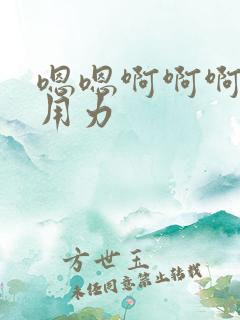 嗯嗯啊啊啊
用力
方世玉
未经同意禁止转载